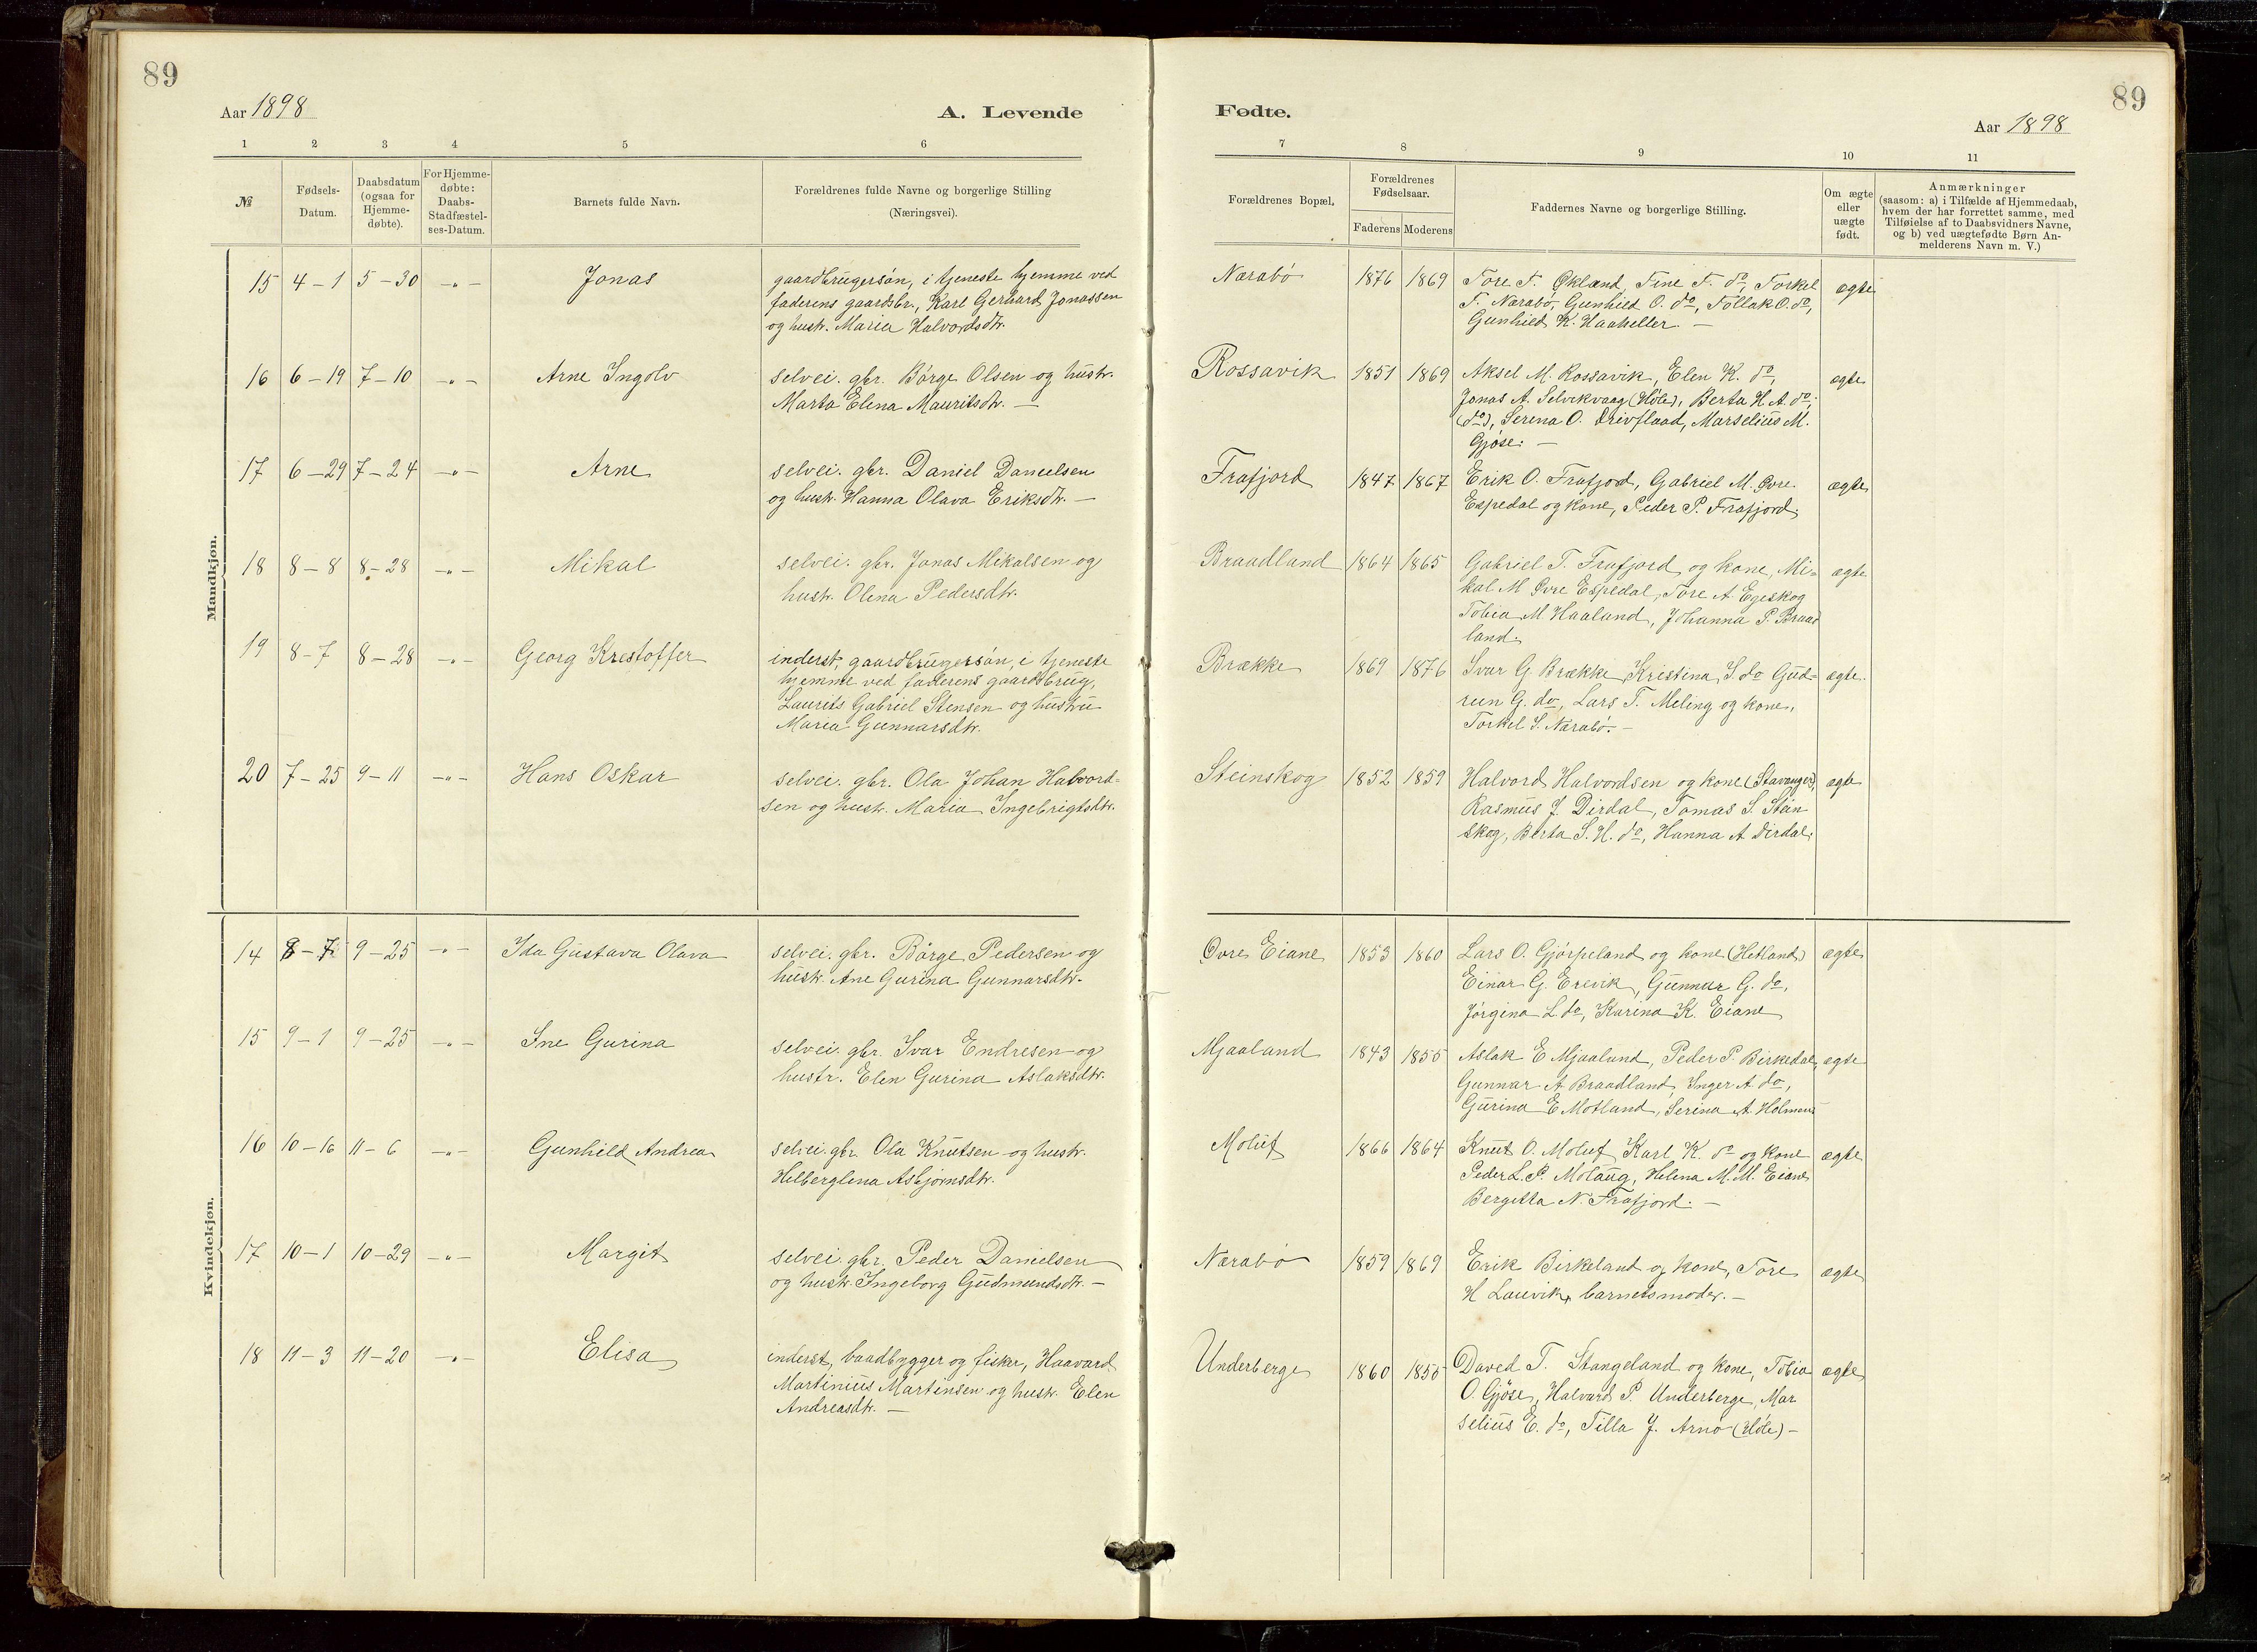 89
89
Aar 1898
A. Levende
Fødte.
Aar 1898
1 2 3 4 5 6
7 8 9 10 11
№
Fødsels-
Datum.
Daabsdatum
(ogsaa for
Hjemme-
døbte).
For Hjemme-
døbte:
Daabs-
Stadfæstel-
ses-Datum.
Barnets fulde Navn.
Forældrenes fulde Navne og borgerlige Stilling
(Næringsvei).
Forældrenes Bopæl.
Forældrenes
Fødselsaar.
Faderens Moderens
Faddernes Navne og borgerlige Stilling.
Om ægte
eller
uægte
født.
Anmærkninger
(saasom: a) i Tilfælde af Hjemmedaab,
hvem der har forrettet samme, med
Tilføielse af to Daabsvidners Navne,
og b) ved uægtefødte Børn An-
melderens Navn m. V.)
Mandkjøn.
15 4-1 5-30 -„- Jonas
gaardbrugersøn, i tjeneste hjemme ved
faderens gaardsbr., Karl Gerhard Jonassen
og hustr. Maria Halvordsdtr.
Nærabø 1876 1869
Tore T. Økland, Tine T. do, Torkel
T. Nærabø, Gunhild O. do, Tollak O. do,
Gunhild K. Haaheller. -
ægte
16 6-19 7-10 -„- Arne Ingolv
selvei. gbr. Børge Olsen og hustr.
Marta Elena Mauritsdtr. -
Rossavik 1851 1869
Aksel M. Rossavik, Elen K. do,
Jonas A. Selvikvaag (Høle), Berta H. A. do,
(do), Serena O. Drivflaad, Marselius M.
Gjøse. -
ægte
17 6-29 7-24 -„- Arne
selvei. gbr. Daniel Danielsen
og hustr. Hanna Olava Eriksdtr. -
Frafjord 1847 1867
Erik O. Frafjord, Gabriel M. Øvre
Espedal og kone, Peder P. Frafjord.
ægte
18 8-8 8-28 -„- Mikal
selvei. gbr. Jonas Mikalsen og
hustr. Olena Pedersdtr.
Braadland 1864 1865
Gabriel T. Frafjord og kone, Mi-
kal M Øvre Espedal, Tore A Egeskog
Tobia M Haaland, Johanna P. Braad
land.
ægte
19 8-7 8-28 -„- Georg Krestoffer
inderst, gaardbrugersøn, i tjeneste
hjemme ved faderens gaardsbrug,
Laurits Gabriel Stensen og hustru
Maria Gunnarsdtr.
Brække 1869 1876
Ivar G. Brække, Kristina S. do Gud-
run G. do, Lars T. Meling og kone,
Torkel S. Nærabø. -
ægte.
20 7-25 9-11 -„- Hans Oskar
selvei. gbr. Ola Johan Halvord-
sen og hustr. Maria Ingebrigtsdtr.
Steinskog 1852 1859
Halvord Halvordsen og kone (Stavanger),
Rasmus J. Dirdal, Tomas S. Stein
skog, Berta S. H. do, Hanna A Dirdal.
ægte
Kvindekjøn.
14 8-7 9-25 -„- Ida Gustava Olava
selvei. gbr. Børge Pedersen og
hustr. Ane Gurina Gunnarsdtr.
Øvre Eiane 1853 1860
Lars O. Gjørpeland og kone (Hetland)
Einar G. Erevik, Gunnar G. do,
Jørgina L. do, Karina K. Eiane
ægte
15 9-1 9-25 -„- Ine Gurina
selvei. gbr. Ivar Endresen og
hustr. Elen Gurina Aslaksdtr.
Mjaaland 1843 1855
Aslak E Mjaaland, Peder P. Birkedal,
Gunnar A Braadland, Inger A do,
Gurina E Motland, Serina A. Holmen
ægte
16 10-16 11-6 -„- Gunhild Andrea
selvei. gbr. Ola Knutsen og hustr.
Helberglena Asbjørnsdtr.
Moluf 1866 1864
Knut O. Moluf Karl K. do og kone
Peder L. P. Molaug, Helena M. M. Eiane
Bergitta N. Frafjord. -
ægte
17 10-1 10-29 -„- Margit
selvei. gbr. Peder Danielsen
og hustr. Ingeborg Gudmundsdtr. -
Nærabø 1859 1869
Erik Birkeland og kone, Tore
H Lauvik, barnets moder. -
ægte
18 11-3 11-20 -„- Elisa
inderst, baadbygger og fisker, Haavard
Martinius Martinsen og hustr. Elen
Andreasdtr. -
Underberge 1860 1855
Daved T. Stangeland og kone, Tobia
O. Gjøse, Halvard P. Underberge, Mar
selius E. do, Tilla J. Arnø (Høle) -
ægte